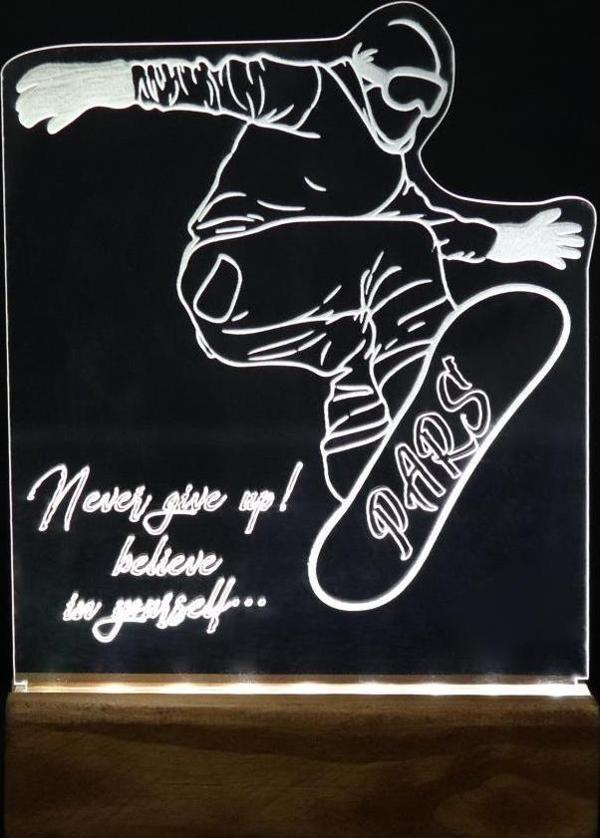 PARS
Never give up!
believe
in yourself...